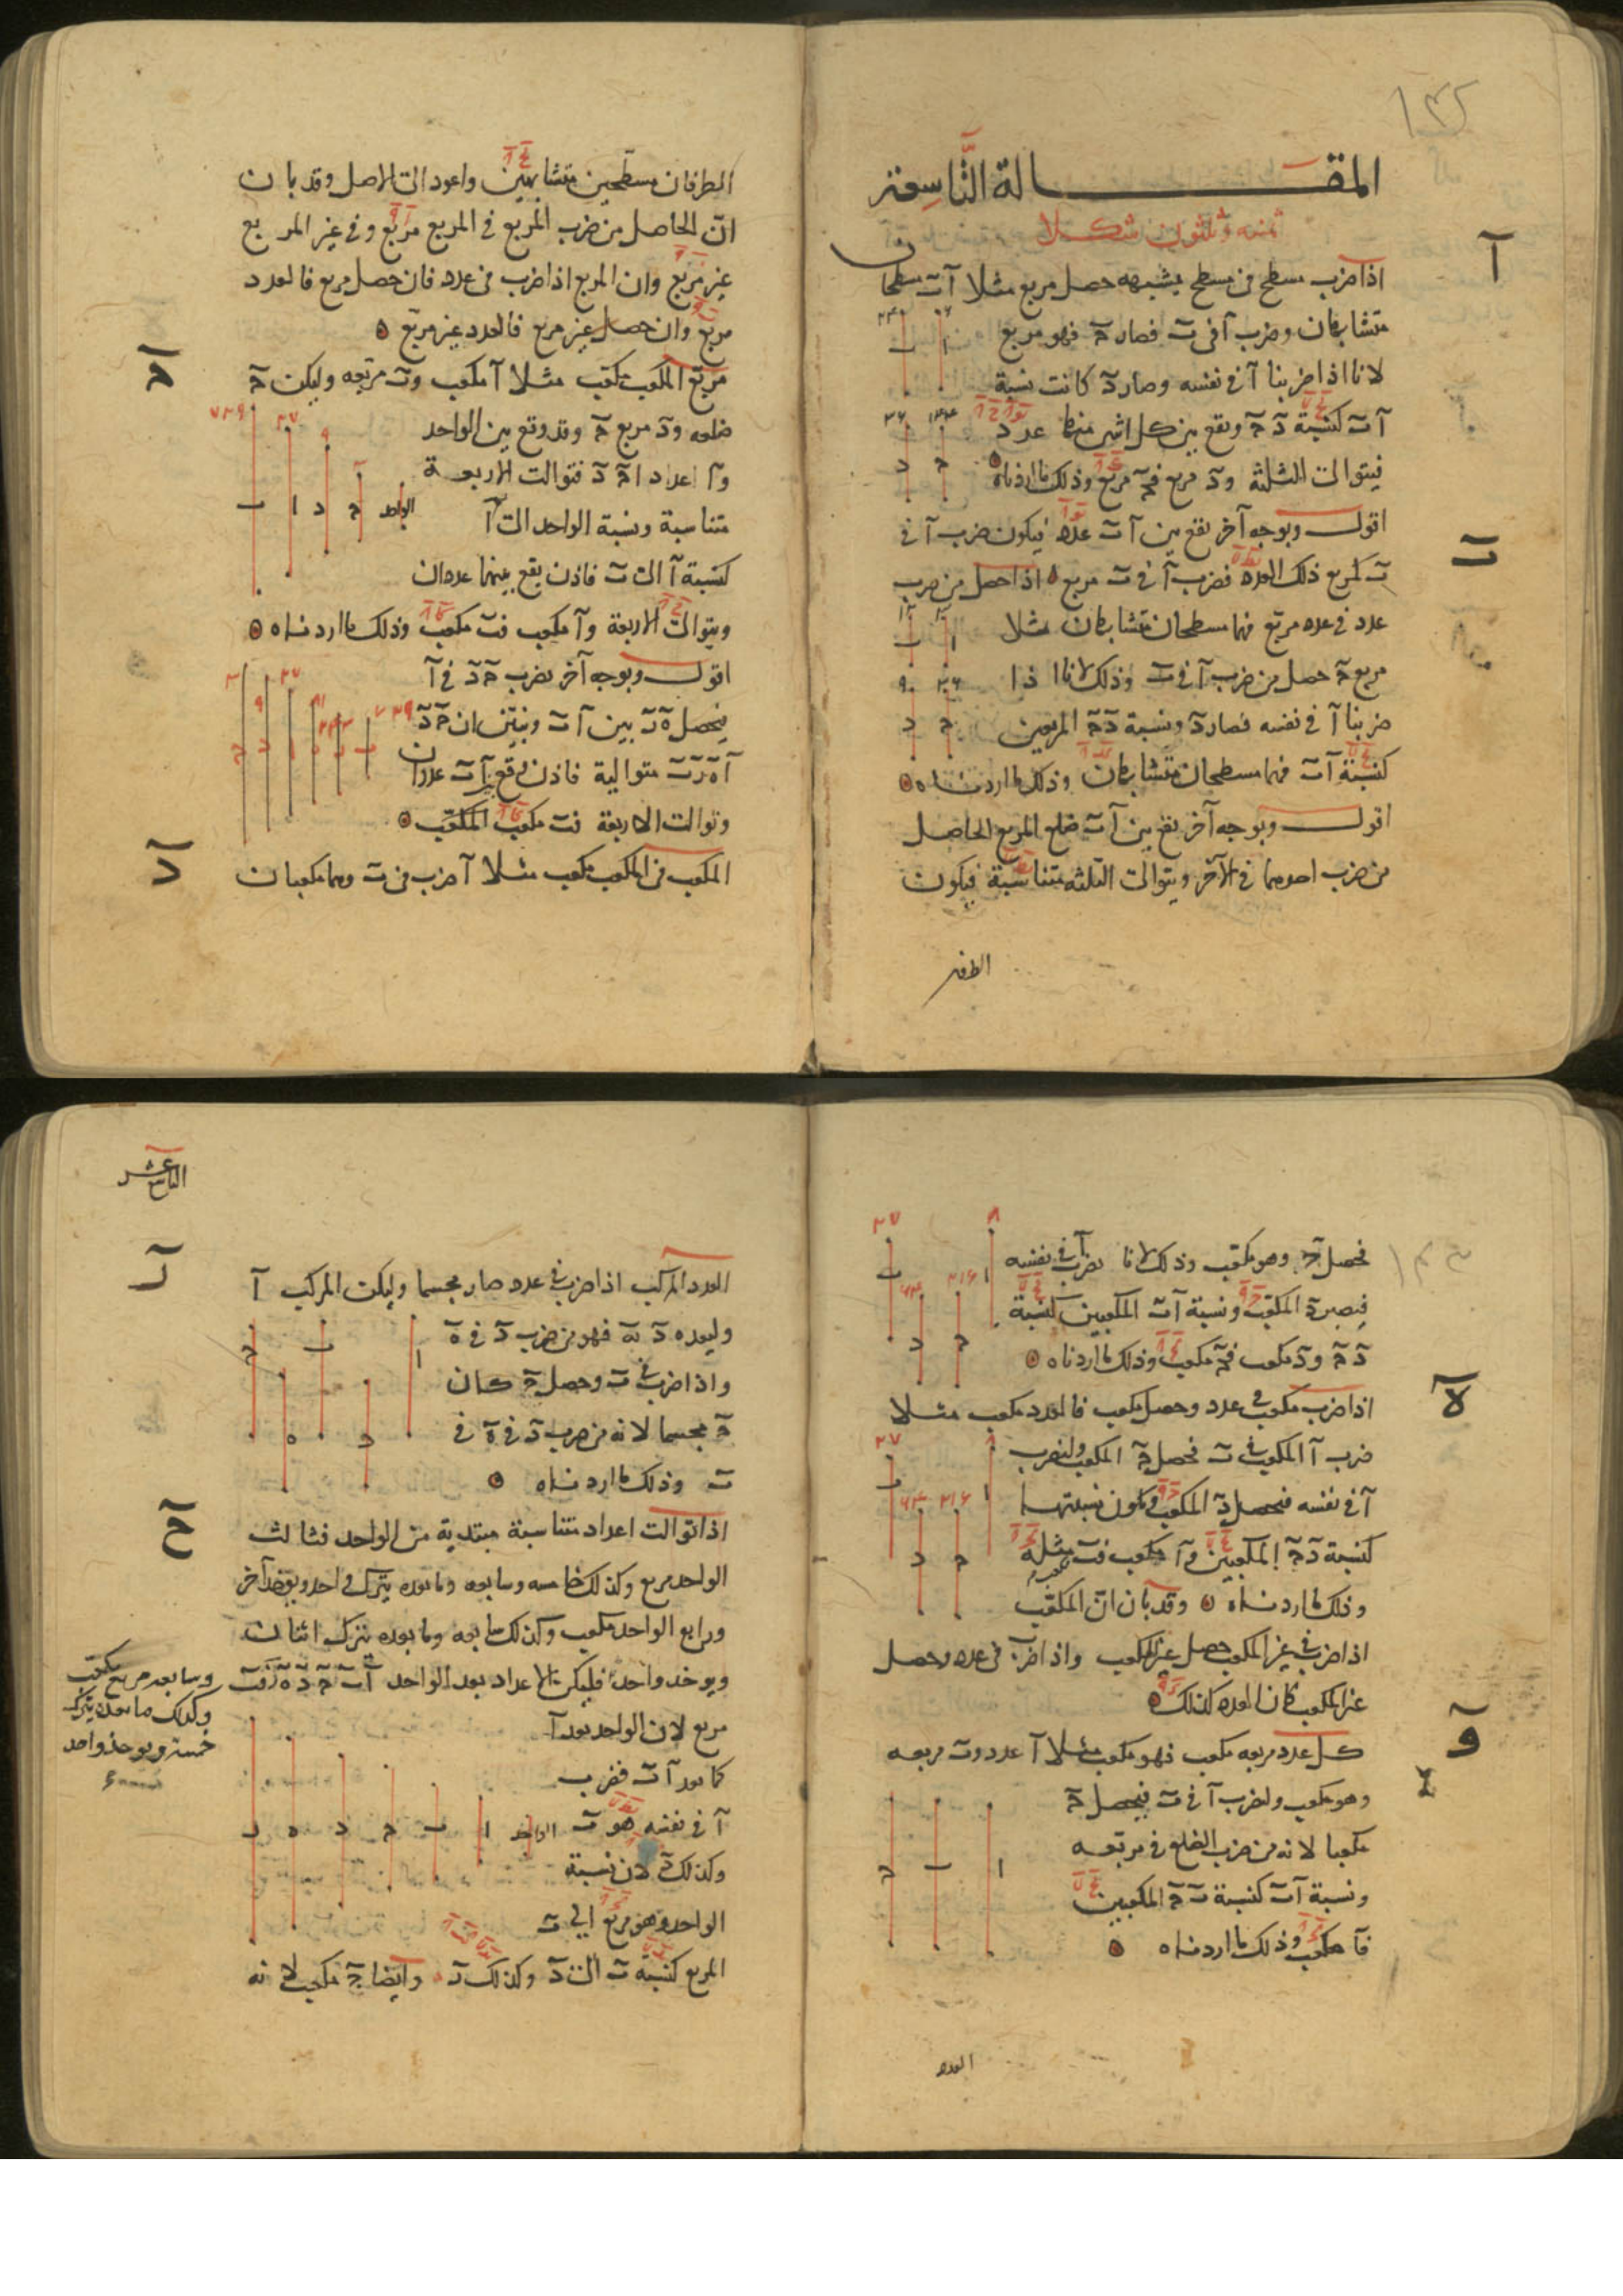 المقالة التاسعة
ثمنيه وثلثون شكلا
آ
اذا ضرب سطح في سطح يشبهه حصل مربع مثلا آ ب سطحان
متشابهان وضرب آ في ب فصار ج فهو مربع
لانا اذا ضربنا آ في نفسه وصار د كانت نسبة
آ ب كنسبة د ج ويقع بين كل اثنين منهما عدد
فيتوالى الثلثة و د مربع فج مربع وذلك ما اردناه
اقول وبوجه آخر يقع بين آ ب عدد فيكون ضرب آ في
ب كمربع ذلك العدد فضرب آ في ب مربع ه اذا حصل من ضرب
ب
عدد في عدد مربع فهما سطحان متشابهان مثلا
مربع ج حصل من ضرب آ في ب وذلك لانا اذا
ضربنا آ في نفسه فصار د ونسبة د ج المربعين
كنسبة آ ب فهما مسطحان متشابهان وذلك ما اردناه
اقول وبوجه آخر يقع بين آ ب ضلع المربع الحاصل
من ضرب احدهما في الآخر ويتوالى الثلثه متناسبة فيكون
الطرفان
الطرفان مسطحين متشابهين واعود الى الاصل وقد بان
ان الحاصل من ضرب المربع في المربع مربع وفي غير المربع
غير مربع وان المربع اذا ضرب في عدد فان حصل مربع فالعدد
مربع وان حصل غير مربع فالعدد غير مربع ه
ج
مربع المكعب مكعب مثلا آ مكعب وب مربعه وليكن ج
ضلعه ود مربع ج وقد وقع بين الواحد
وآ اعداد ا ج د فتوالت الاربعة
متناسبة ونسبة الواحد الى آ
كنسبة آ الى ب فاذن يقع بينهما عددان
ويتوالى الاربعة وآ مكعب فب مكعب وذلك ما اردناه
اقول وبوجه آخر نضرب ج د في آ
فيحصل ه ر بين آ ب ونبين ان ج د
آ ه ر ب متوالية فاذن وقع بين آ ب عددان
وتوالت الاربعة فب مكعب المكعب
د
المكعب في المكعب مكعب مثلا آ ضرب في ب وهما مكعبان
فحصل ج وهو مكعب وذلك لانا نضرب آ في نفسه
فيصير د المكعب ونسبة آ ب المكعبين كنسبة
د ج ود مكعب فج مكعب وذلك ما اردناه
ه
اذا ضرب مكعب في عدد وحصل مكعب فالعدد مكعب مثلا
ضرب آ المكعب في ب فحصل ج المكعب ولنضرب
آ في نفسه فيحصل د المكعب وتكون نسبتهما
كنسبة د ج المكعبين وآ مكعب فب مثله
وذلك ما اردناه وقد بان ان المكعب
اذا ضرب في غير المكعب حصل غير المكعب واذا ضرب في عدد وحصل
غير المكعب كان العدد كذلك
و
كل عدد مربعه مكعب فهو مكعب مثلا آ عدد وب مربعه
وهو مكعب ولنضرب آ في ب فيحصل ج
مكعبا لانه من ضرب الضلع في مربعه
ونسبة آ ب كنسبة ب ج المكعبين
فآ مكعب وذلك ما اردناه
العدد
ز
العدد المركب اذا ضرب في عدد صار مجسما وليكن المركب آ
وليعده د ب‍ه فهو من ضرب د في ه
واذا ضرب في ب وحصل ج كان
ج مجسما لانه من ضرب د في ه في
ب وذلك ما اردناه
ح
اذا توالت اعداد متناسبة مبتدية من الواحد فثالث
الواحد مربع وكذلك خامسه وسابعه وما بعده يترك واحد ويوخذ آخر
ورابع الواحد مكعب وكذلك سابعه وما بعده يترك اثنان
ويوخذ واحد فليكن الاعداد بعد الواحد آ ب ج د ه ر فب
وسابعه مربع مكعب
وكذلك ما بعده يترك
خمسة ويوخذ واحد
مربع لان الواحد يعد آ
كما يعد آ ب فضرب
آ في نفسه هو ب
وكذلك د لان نسبة
الواحد وهو مربع الى ب
المربع كنسبة ب الى د وكذلك ر وايضا ج مكعب لانه